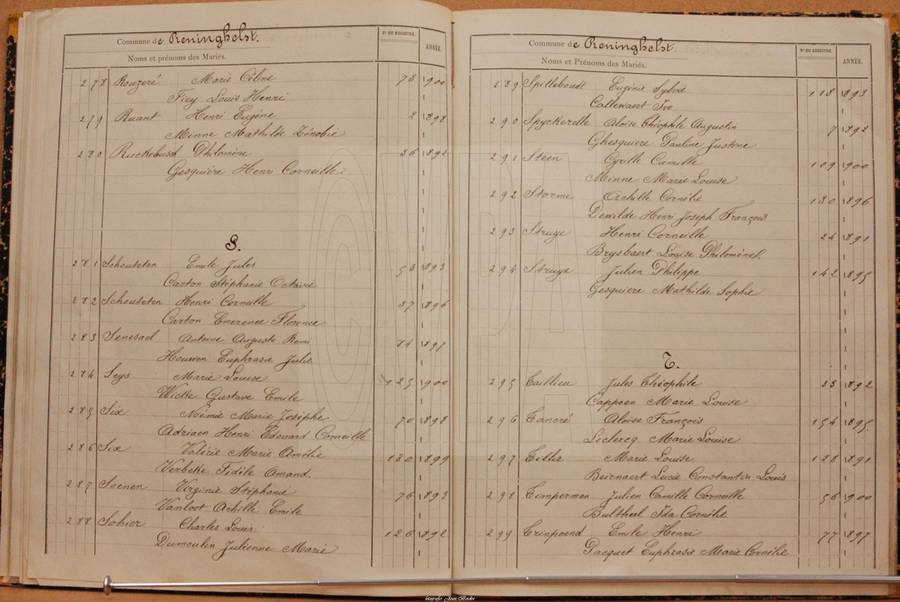 Commune de Reninghelst.
Nos DU REGISTRE
ANNÉE.
Noms et prénoms des Mariés.
278 Rouzeré Marie Céline 78 1900
Fiey Louis Henri
279 Ruant Henri Eugène 2 1898
Minne Mathilde Zénobie
280 Ruckebusch Philomène 36 1894
Gesquière Henri Corneille
S.
281 Schouteten Emile Jules 58 1893
Carton Stéphanie Octavie
282 Schouteten Henri Corneille 37 1896
Carton Emerence Florence
283 Senesael Antoine Auguste Remi 74 1897
Houwen Euphrasie Julie
284 Seys Marie Louise 125 1900
Wicke Gustave Emile
285 Six Noémie Marie Josèphe 70 1898
Adriaen Henri Edouard Corneille
286 Six Valérie Marie Amélie 130 1899
Verbeke Fidèle Amand.
287 Soenen Virginie Stéphanie 76 1893
Vanloot Achille Emile
288 Sohier Charles Louis 126 1892
Dumoulin Julienne Marie
Commune de Reninghelst.
Nos DU REGISTRE
ANNÉE.
Noms et Prénoms des Mariés.
289 Spilleboudt Eugénie Sylvie 118 1893
Callewaert Ivo
290 Spyckerelle Aloïse Théophile Augustin 7 1892
Ghesquière Pauline Justine
291 Steen Cyrille Camille 109 1900
Minne Marie Louise
292 Storme Achille Cornélie 130 1896
Dewilde Henri Joseph François
293 Struye Henri Corneille 24 1891
Brysbaert Louise Philomène.
294 Struye Julien Philippe 142 1895
Gesquiere Mathilde Sophie
T.
295 Taillieu Jules Théophile 23 1892
Cappoen Marie Louise
296 Tancré Aloïse François 154 1895
Leclercq Marie Louise
297 Tithe Marie Louise 128 1891
Beirnaert Lucien Constantin Louis
298 Timperman Julien Camille Corneille 56 1900
Bultheel Ida Cornélie
299 Trinpoend Emile Henri 77 1897
Pacquet Euphrasie Marie Cornélie